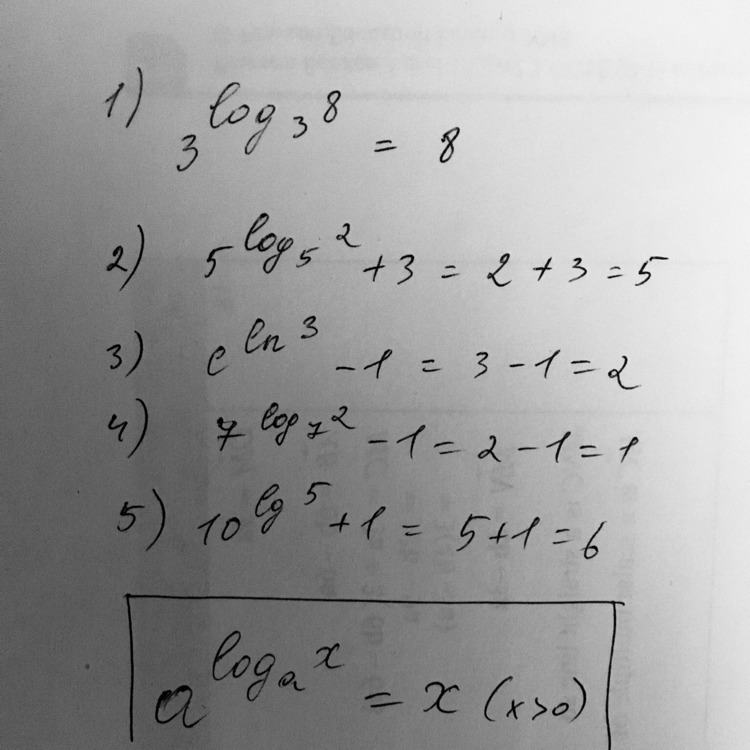 1) 3^log₃8 = 8
2) 5^log₅2 + 3 = 2 + 3 = 5
3) e^ln3 - 1 = 3 - 1 = 2
4) 7^log₇2 - 1 = 2 - 1 = 1
5) 10^lg5 + 1 = 5 + 1 = 6
a^logₐx = x (x>0)